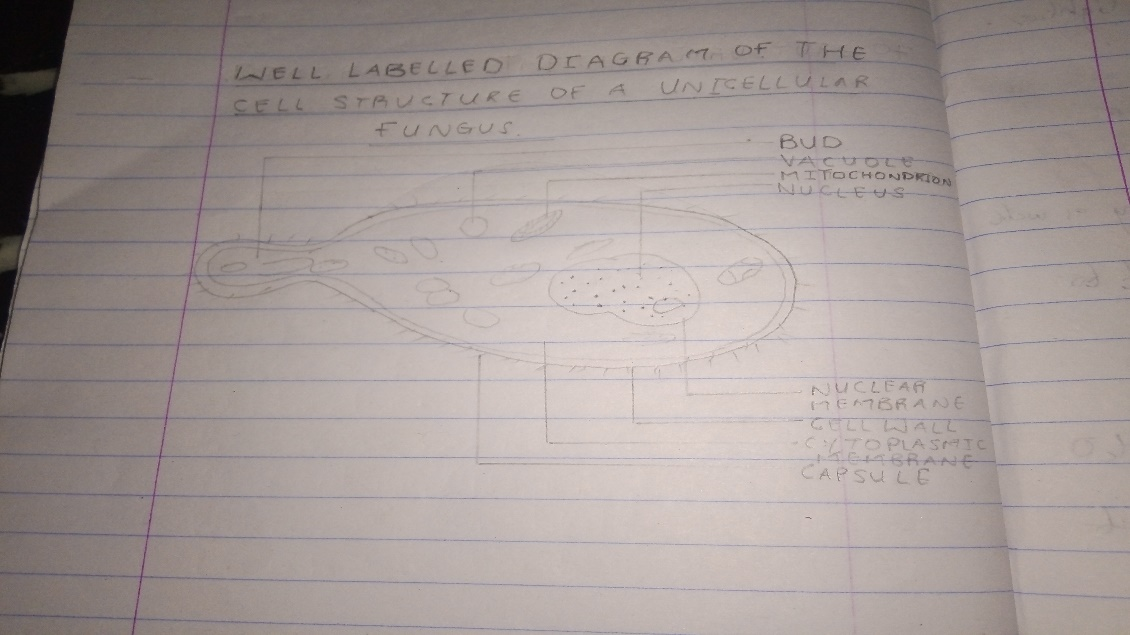 WELL LABELLED DIAGRAM OF THE
CELL STRUCTURE OF A UNICELLULAR
FUNGUS.
BUD
VACUOLE
MITOCHONDRION
NUCLEUS
NUCLEAR
MEMBRANE
CELL WALL
CYTOPLASMIC
MEMBRANE
CAPSULE